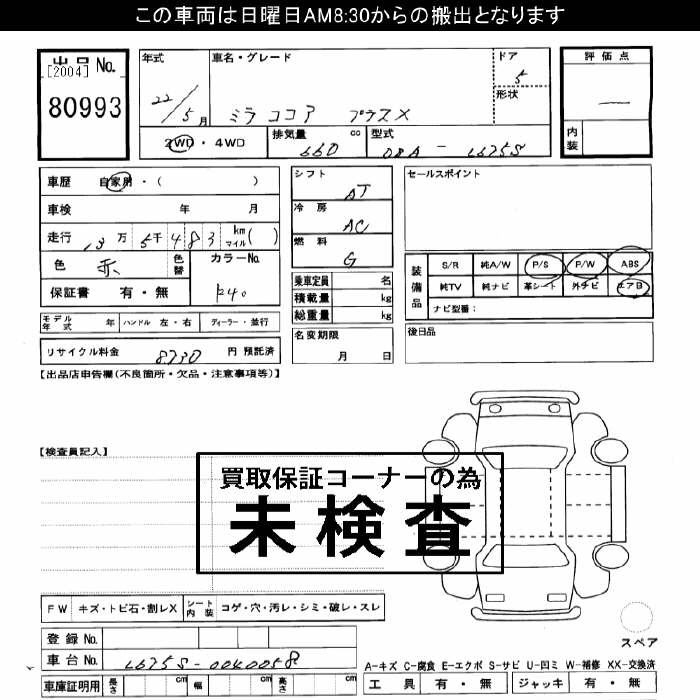 この車両は日曜日AM8:30からの搬出となります
出品 No.
[2004]
80993
年式
22/5月
車名・グレード
ミラ ココア プラスX
ドア
5
形状
2WD・4WD
排気量 cc
660
型式
DBA - L675S
評価点
内装
車歴 自家用・( )
車検 年 月
走行 13万 5千483 km マイル ( )
色 赤
色替
カラーNo.
R40
保証書 有・無
モデル年式 年
ハンドル 左・右
ディーラー・並行
リサイクル料金 8730 円 預託済
シフト
AT
冷房
AC
燃料
G
乗車定員 名
積載量 kg
総重量 kg
名変期限
月 日
セールスポイント
装備品
S/R 純A/W P/S P/W ABS
純TV 純ナビ 革シート 外ナビ エアB
ナビ型番:
後日品
【出品店申告欄(不良箇所・欠品・注意事項等)】
【検査員記入】
買取保証コーナーの為
未検査
FW キズ・トビ石・割レX
シート内装 コゲ・穴・汚レ・シミ・破レ・スレ
登録 No.
車台 No. L675S-0040058
車庫証明用 長さ cm 幅 cm 高さ cm
スペア
A-キズ C-腐食 E-エクボ S-サビ U-凹ミ W-補修 XX-交換済
工具 有・無 ジャッキ 有・無